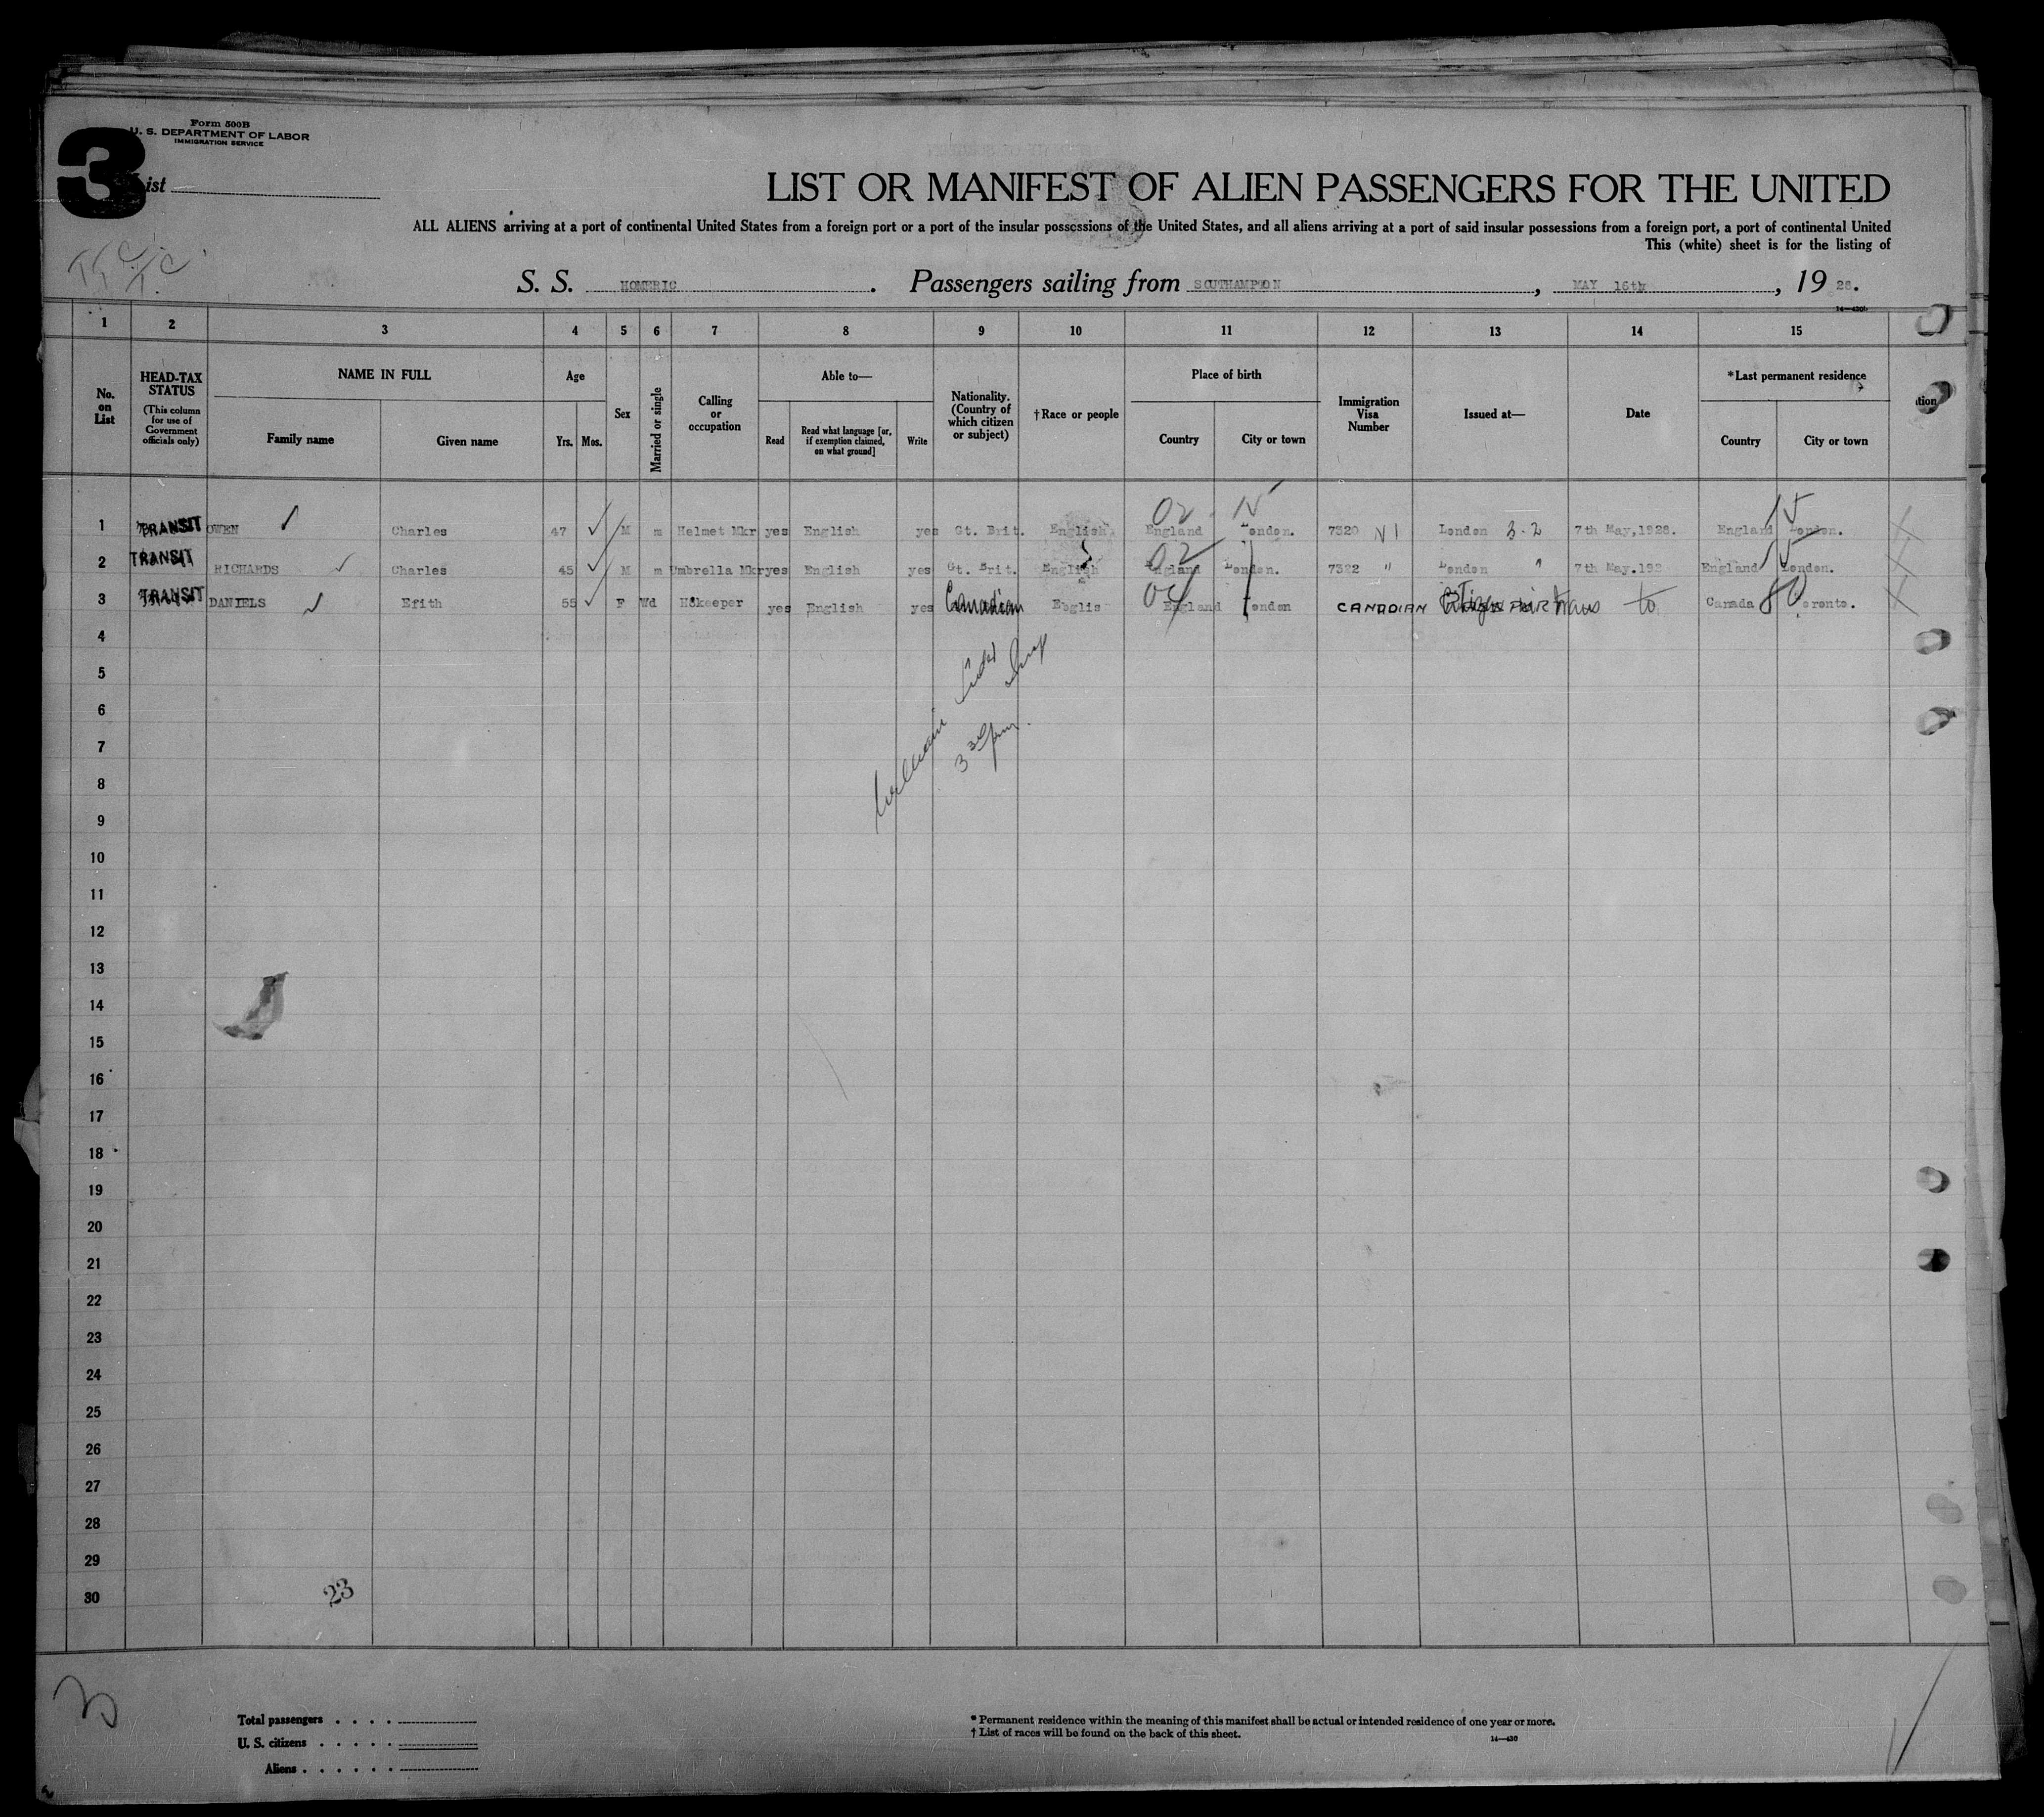 Form 500B
U. S. DEPARTMENT OF LABOR
IMMIGRATION SERVICE
3
List
LIST OR MANIFEST OF ALIEN PASSENGERS FOR THE UNITED
ALL ALIENS arriving at a port of continental United States from a foreign port or a port of the insular possessions of the United States, and all aliens arriving at a port of said insular possessions from a foreign port, a port of continental United
This (white) sheet is for the listing of
S. S. HOMERIC . Passengers sailing from SOUTHAMPTON , MAY 16th , 19 28.
14—430
1 2 3 4 5 6 7 8 9 10 11 12 13 14 15
No. on List
HEAD-TAX STATUS
(This column for use of Government officials only)
NAME IN FULL
Family name
Given name
Age
Yrs. Mos.
Sex
Married or single
Calling or occupation
Able to—
Read
Read what language [or, if exemption claimed, on what ground]
Write
Nationality. (Country of which citizen or subject)
†Race or people
Place of birth
Country
City or town
Immigration Visa Number
Issued at—
Date
*Last permanent residence
Country
City or town
1 TRANSIT OWEN Charles 47 M m Helmet Mkr yes English yes Gt. Brit. English 02 England 15 London. 7320 N I London 3-2 7th May,1928. England 15 London.
2 TRANSIT RICHARDS Charles 45 M m Umbrella Mkr yes English yes Gt. Brit. English 02 England London. 7322 " London " 7th May.192 England 15 London.
3 TRANSIT DANIELS Efith 55 F Wd H'keeper yes English yes Canadian Englis 04 England London CANADIAN Citizen to Canada 80 Toronto.
4
5
6
7
8
9
10
11
12
13
14
15
16
17
18
19
20
21
22
23
24
25
26
27
28
29
30
3 30 pm.
23
Total passengers . . . .
U. S. citizens . . . . .
Aliens . . . . . .
* Permanent residence within the meaning of this manifest shall be actual or intended residence of one year or more.
† List of races will be found on the back of this sheet.
14—430